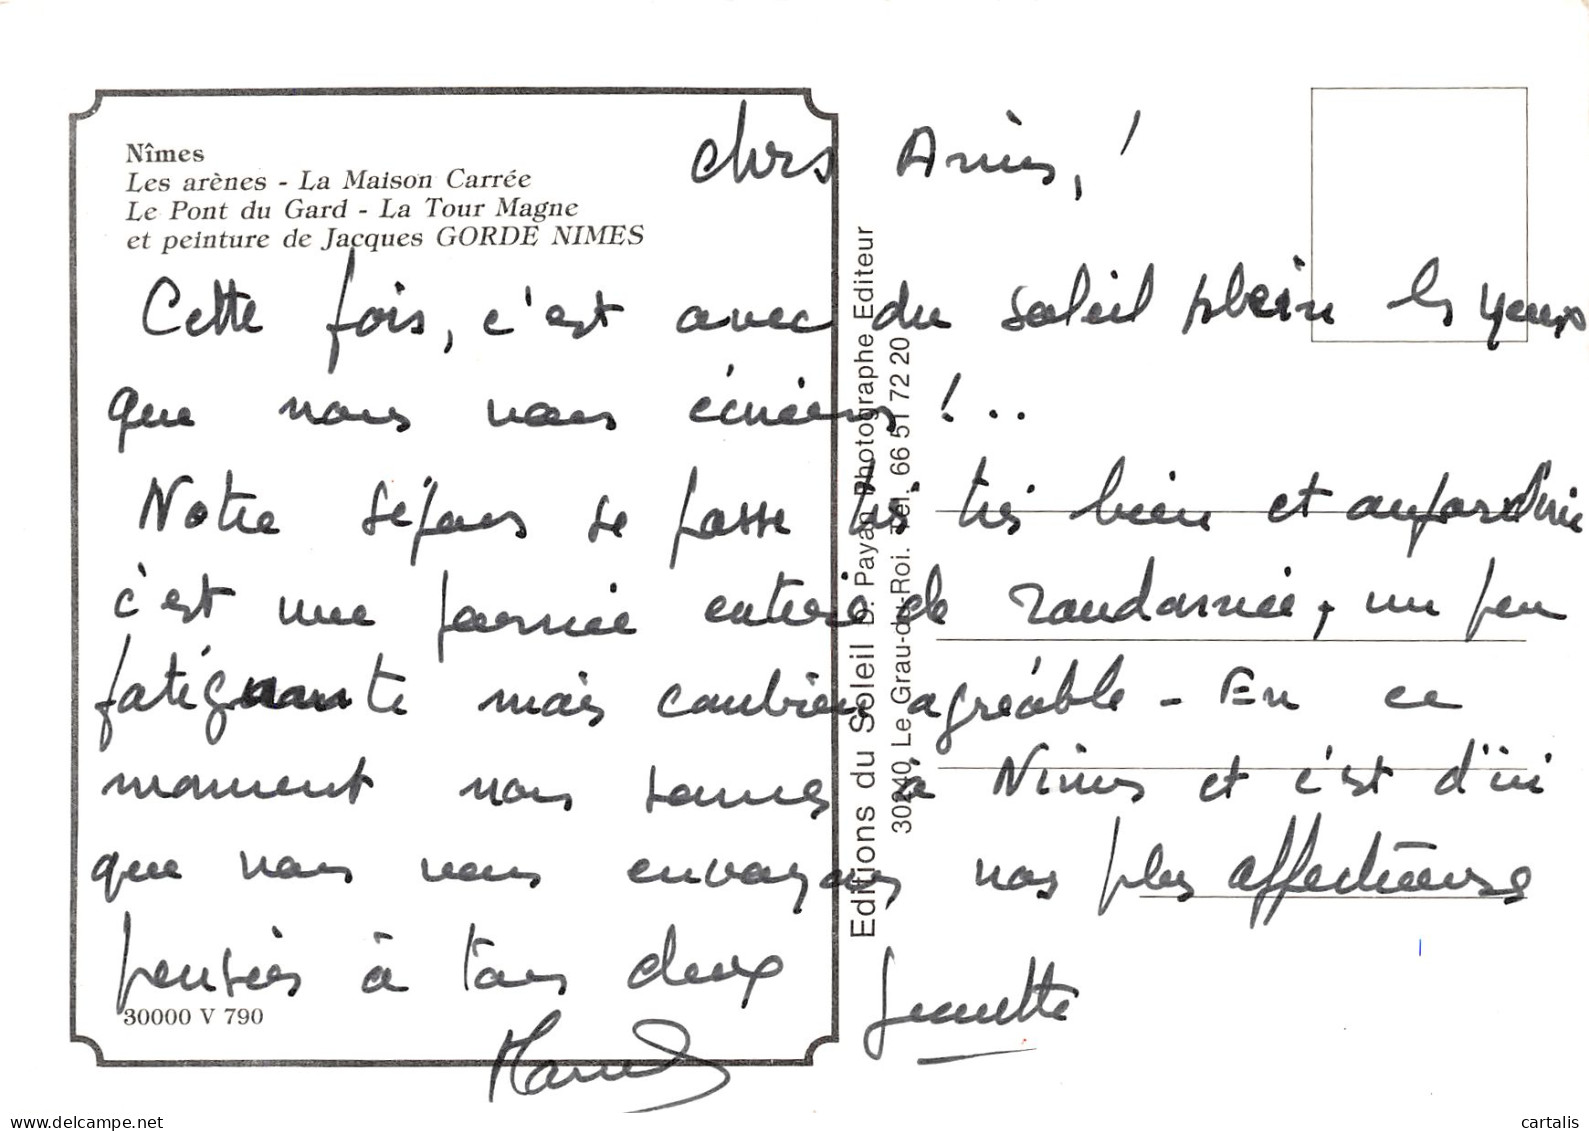 Nîmes
Les arènes - La Maison Carrée
Le Pont du Gard - La Tour Magne
et peinture de Jacques GORDE NIMES
chers Amis, !
Cette fois, c'est avec du soleil plein les yeux
que nous vous écrivons !..
Notre séjour se passe très très bien et aujourd'hui
c'est une journée entière de randonnée, un peu
fatigante mais combien agréable - En ce
moment nous sommes à Nîmes et c'est d'ici
que nous vous envoyons nos plus affectueuses
pensées à tous deux
Jeannette
Marcel
30000 V 790
Editions du Soleil D. Payan Photographe Editeur
30240 Le Grau-du-Roi. Tél. 66 51 72 20
www.delcampe.net
cartalis